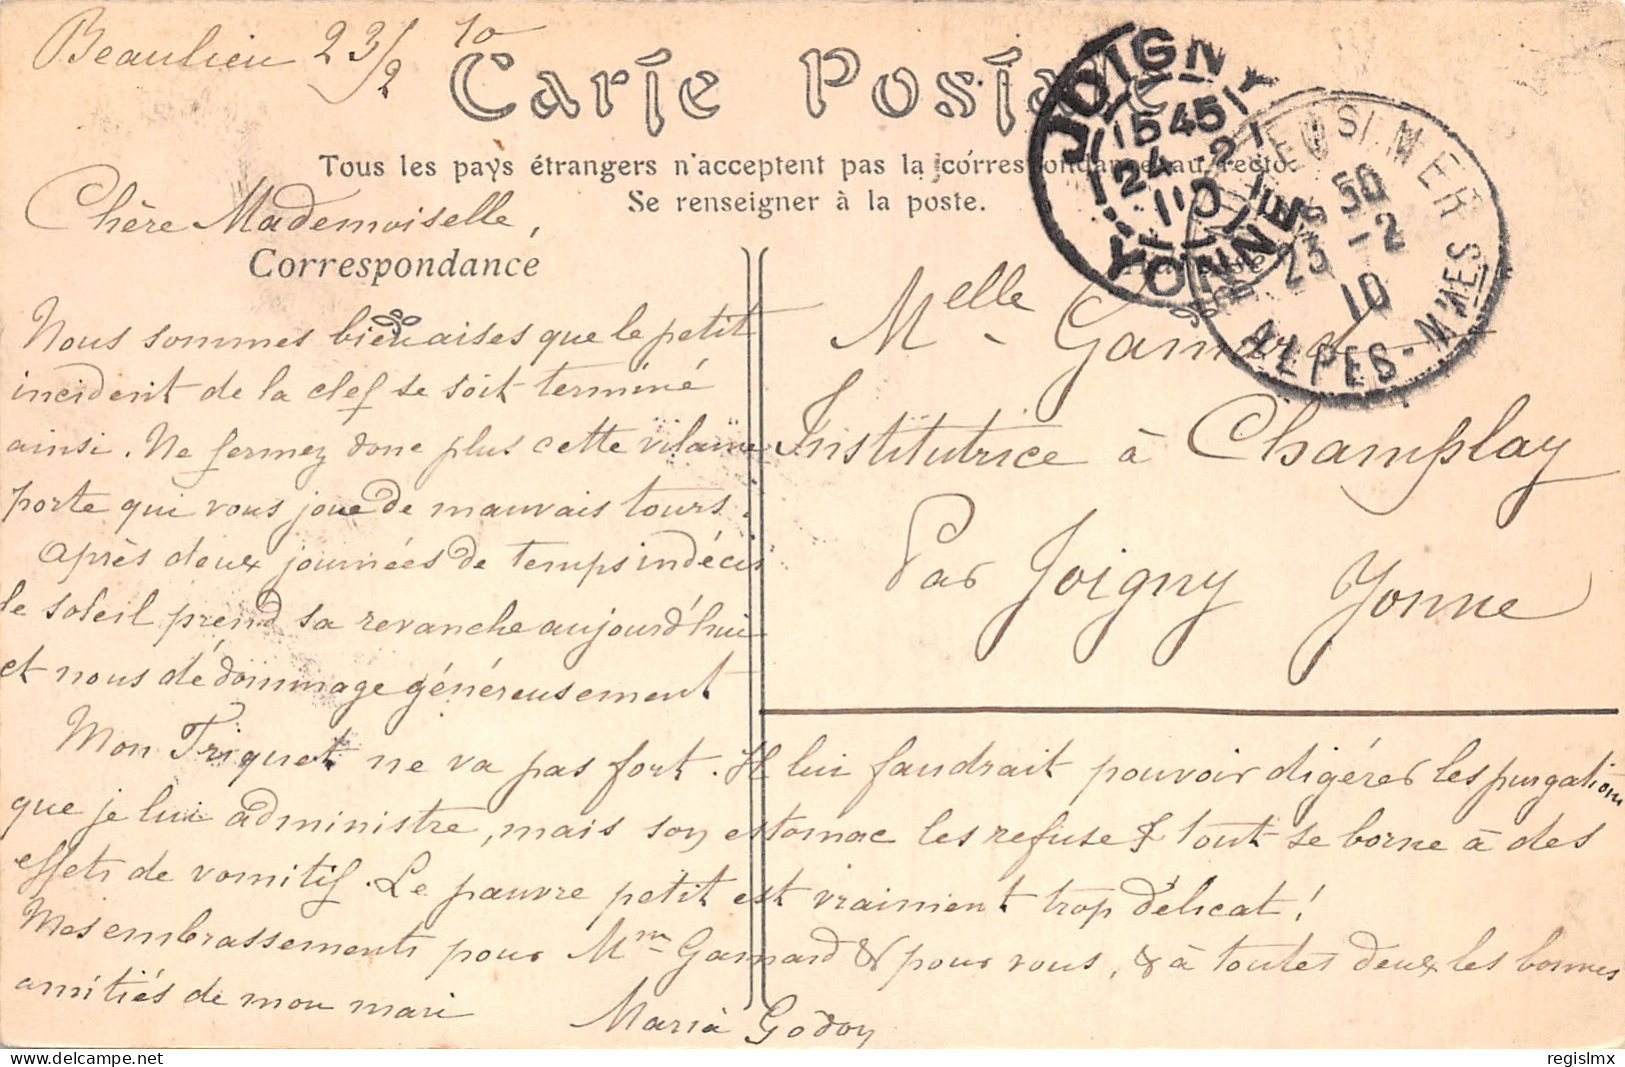 Beaulieu 23/2 10
Carte Postale
Tous les pays étrangers n'acceptent pas la correspondance au recto.
Se renseigner à la poste.
JOIGNY
15 45
24 - 2
10
YONNE
BEAULIEU S! MER
50
23 - 2
10
ALPES-MMES
Chère Mademoiselle,
Correspondance
Nous sommes bien aises que le petit
incident de la clef se soit terminé
ainsi. Ne fermez donc plus cette vilaine
porte qui vous joue de mauvais tours.
Après deux journées de temps indécis
le soleil prend sa revanche aujourd'hui
et nous dédommage généreusement
Melle Gamard
Institutrice à Champlay
Par Joigny Yonne
Mon Triquet ne va pas fort. Il lui faudrait pouvoir digérer les purgations
que je lui administre, mais son estomac les refuse & tout se borne à des
effets de vomitif. Le pauvre petit est vraiment trop délicat!
Mes embrassements pour Mme Gamard & pour vous, & à toutes deux les bonnes
amitiés de mon mari
Maria Godon
regislmx